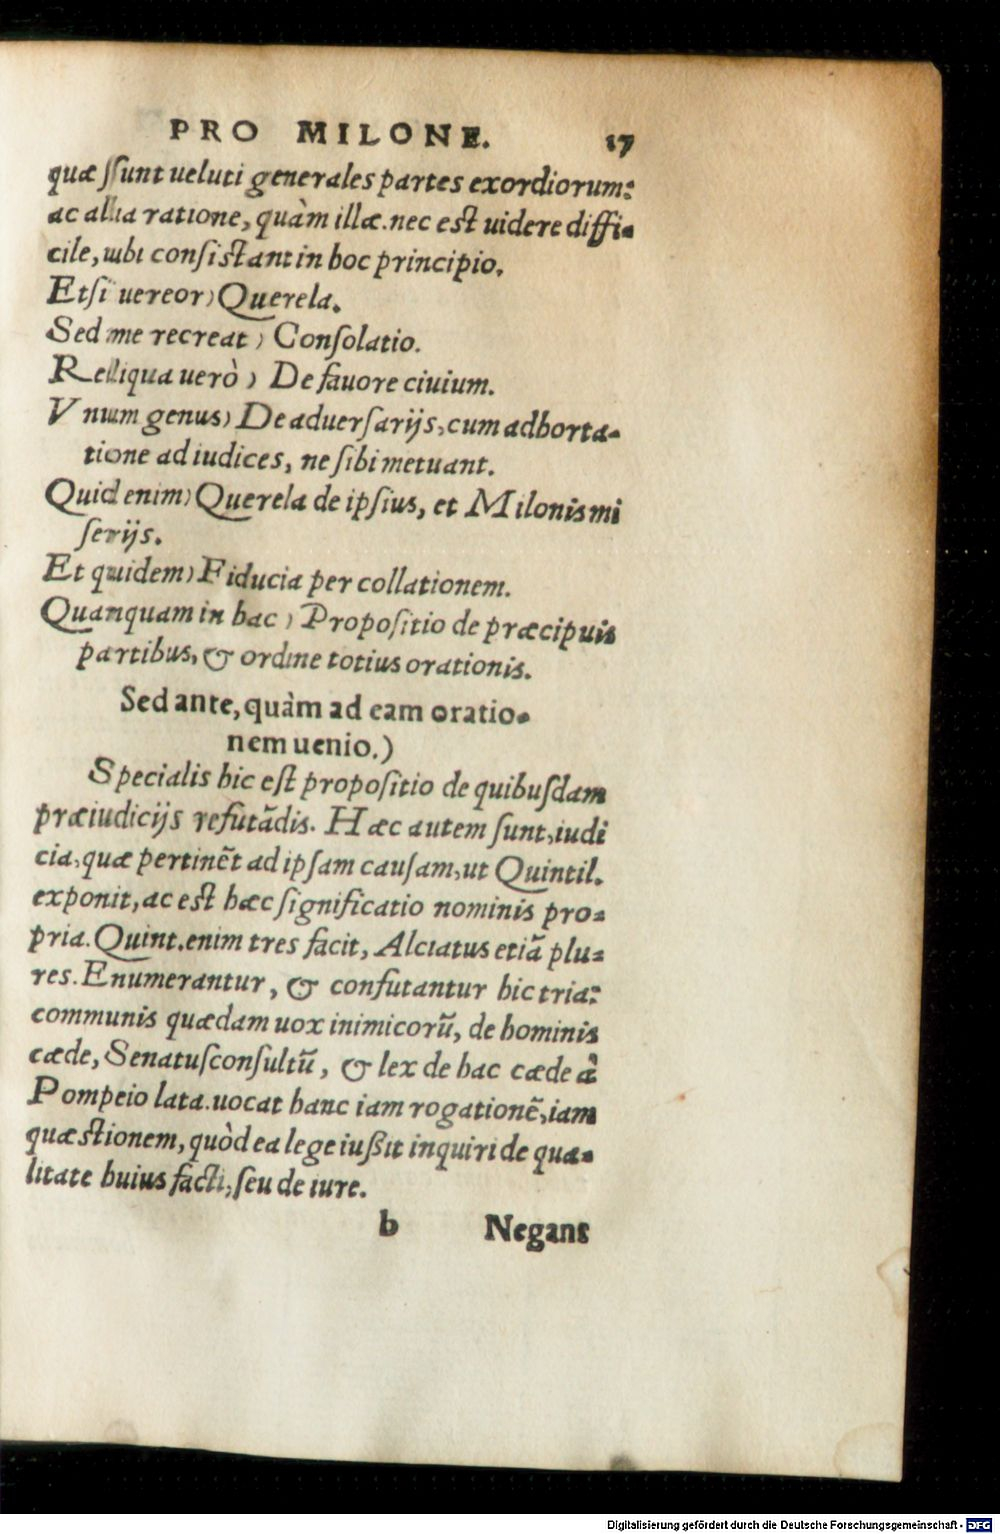 PRO MILONE. 17
quæ ſunt ueluti generales partes exordiorum:
ac alia ratione, quàm illæ. nec est uidere diffi-
cile, ubi conſiſtant in hoc principio.
Etſi uereor) Querela.
Sed me recreat) Conſolatio.
Reliqua uerò) De fauore ciuium.
Vnum genus) De aduerſarijs, cum adhorta-
tione ad iudices, ne ſibi metuant.
Quid enim) Querela de ipſius, et Milonis mi
ſerijs.
Et quidem) Fiducia per collationem.
Quanquam in hac) Propoſitio de præcipuis
partibus, & ordine totius orationis.
Sed ante, quàm ad eam oratio-
nem uenio.)
Specialis hic eſt propoſitio de quibuſdam
præiudicijs refutādis. Hæc autem ſunt, iudi
cia, quæ pertinēt ad ipſam cauſam, ut Quintil.
exponit, ac eſt hæc ſignificatio nominis pro-
pria. Quint. enim tres facit, Alciatus etiā plu-
res. Enumerantur, & confutantur hic tria:
communis quædam uox inimicorū, de hominis
cæde, Senatuſconſultū, & lex de hac cæde à
Pompeio lata. uocat hanc iam rogationē, iam
quæſtionem, quòd ea lege iußit inquiri de qua-
litate huius facti, ſeu de iure.
b Negans
Digitalisierung gefördert durch die Deutsche Forschungsgemeinschaft - DFG